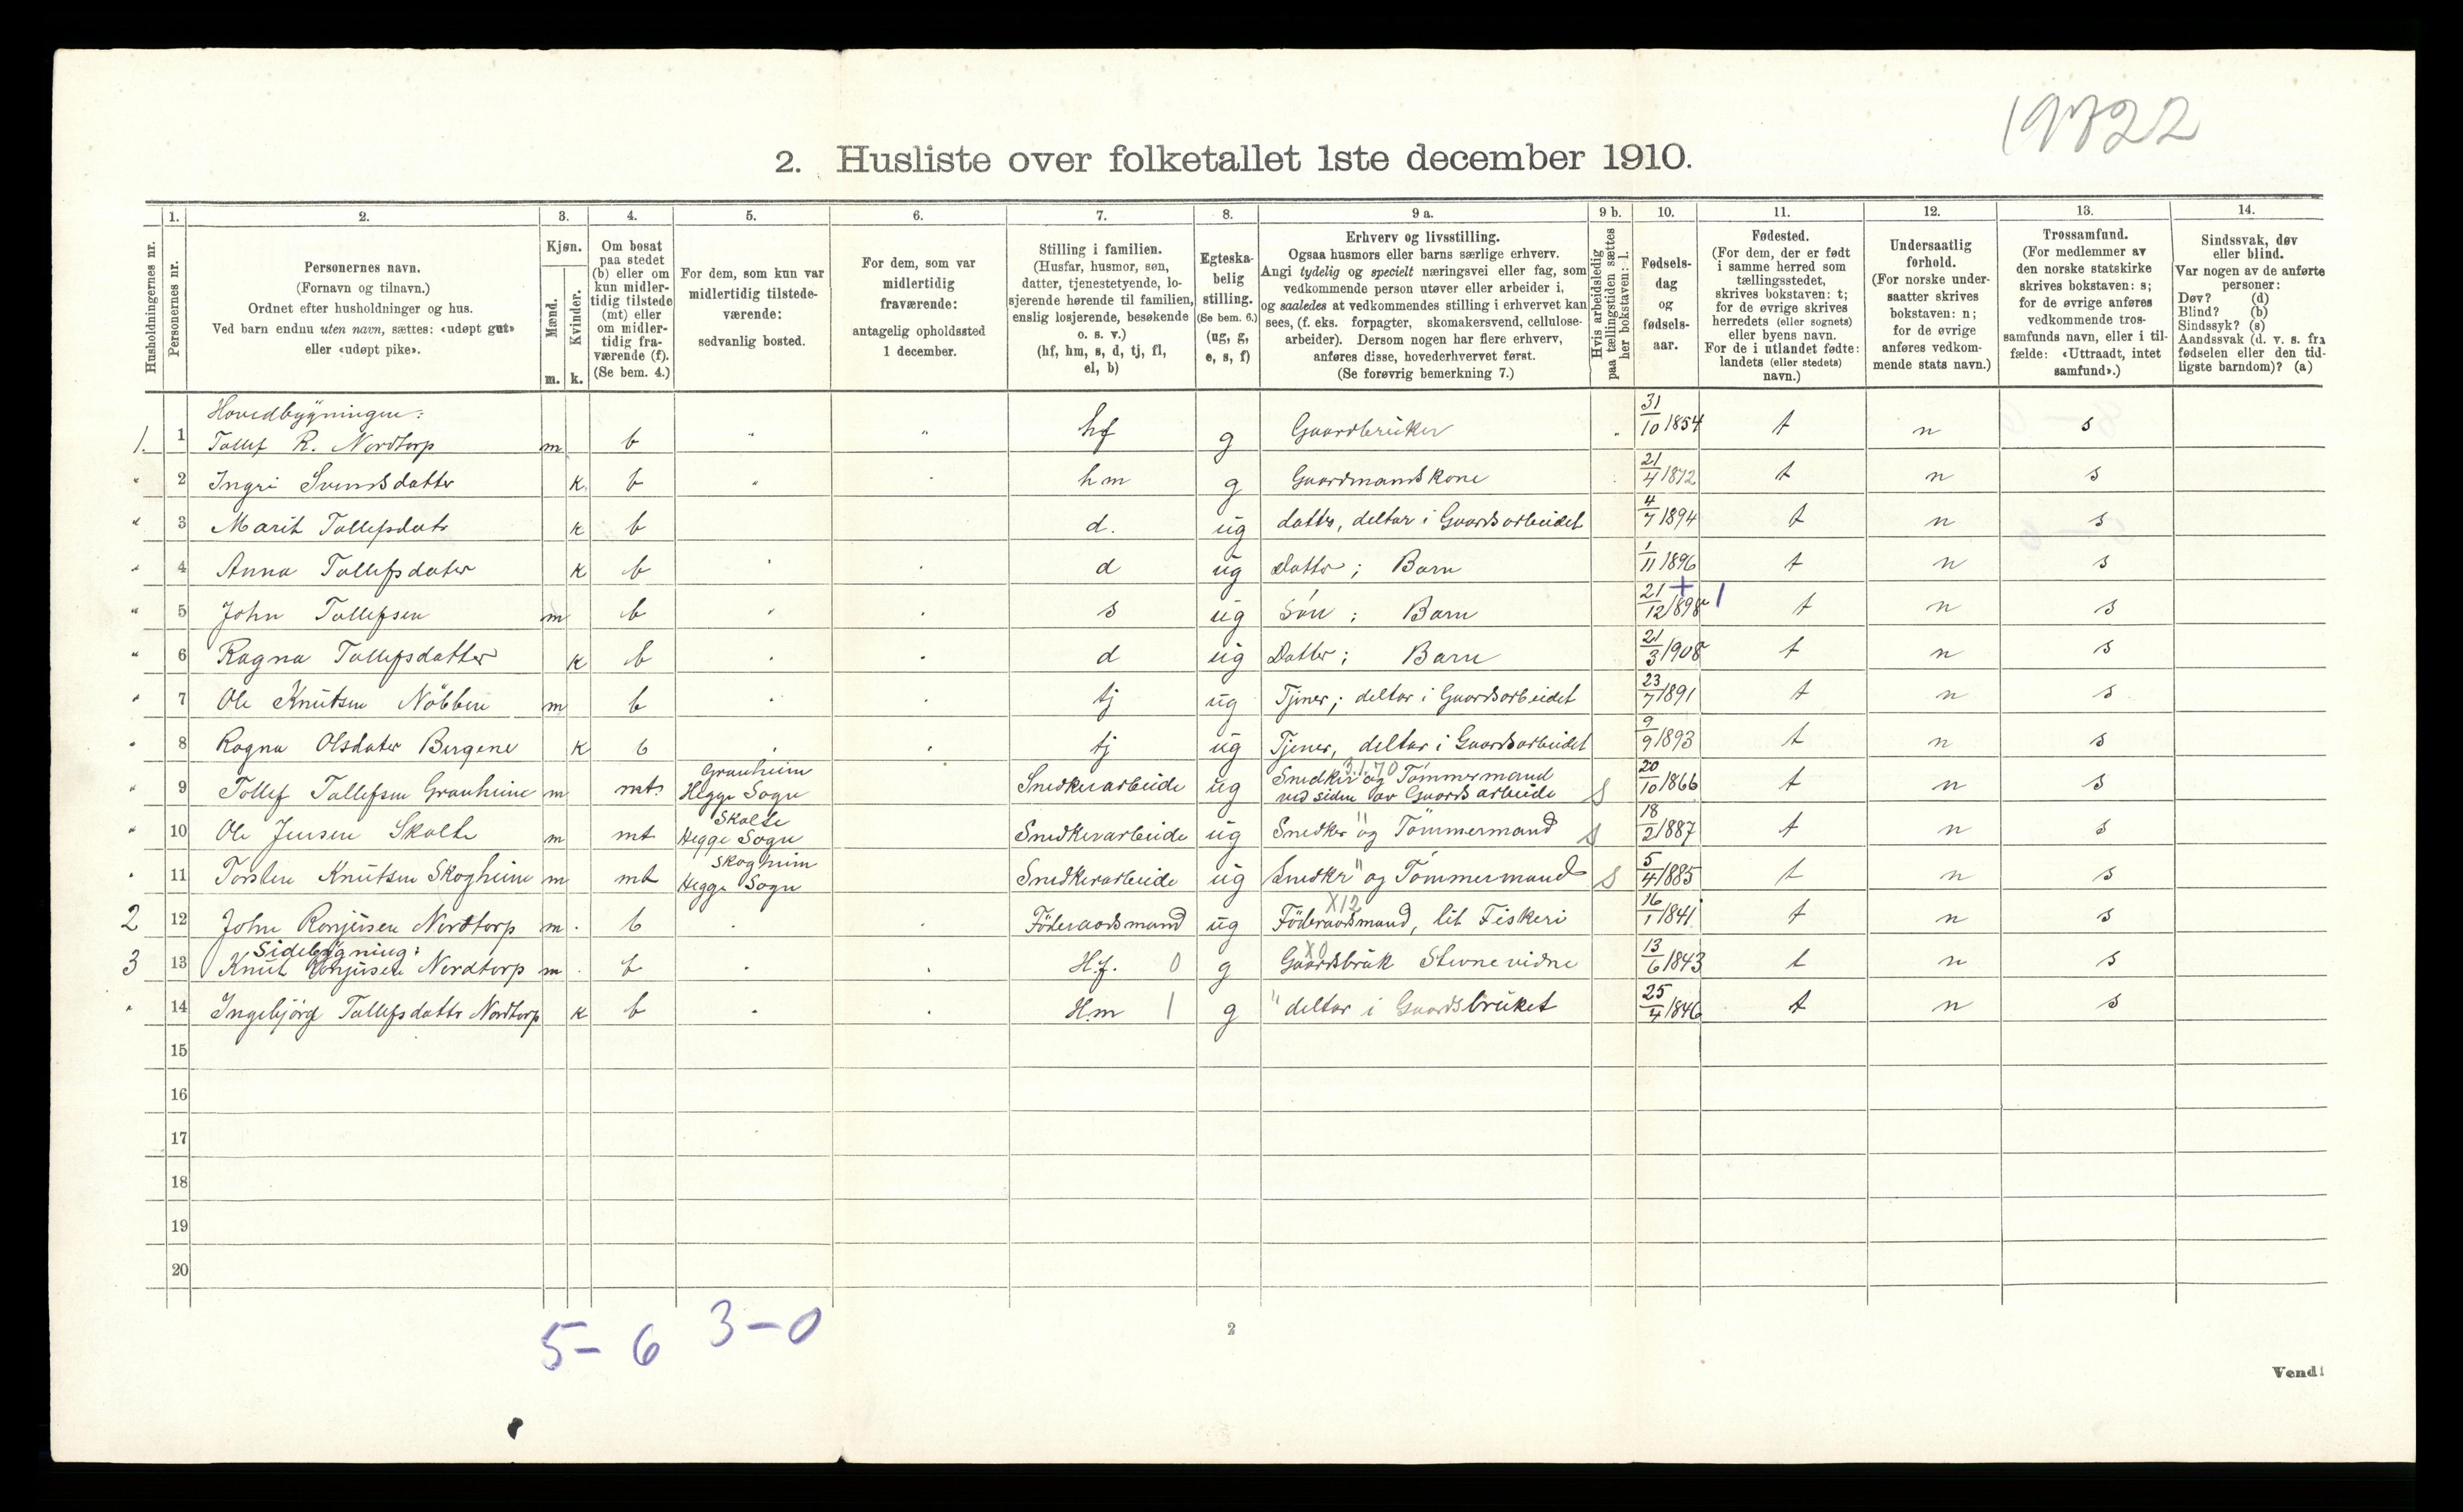 19722
2. Husliste over folketallet 1ste december 1910.
Husholdningernes nr.
1.
Personernes nr.
2.
Personernes navn.
(Fornavn og tilnavn.)
Ordnet efter husholdninger og hus.
Ved barn endnu uten navn, sættes: «udøpt gut»
eller «udøpt pike».
3.
Kjøn.
Mænd.
Kvinder.
m. k.
4.
Om bosat
paa stedet
(b) eller om
kun midler-
tidig tilstede
(mt) eller
om midler-
tidig fra-
værende (f).
(Se bem. 4.)
5.
For dem, som kun var
midlertidig tilstede-
værende:
sedvanlig bosted.
6.
For dem, som var
midlertidig
fraværende:
antagelig opholdssted
1 december.
7.
Stilling i familien.
(Husfar, husmor, søn,
datter, tjenestetyende, lo-
sjerende hørende til familien,
enslig losjerende, besøkende
o. s. v.)
(hf, hm, s, d, tj, fl,
el, b)
8.
Egteska-
belig
stilling.
(Se bem. 6.)
(ug, g,
e, s, f)
9 a.
Erhverv og livsstilling.
Ogsaa husmors eller barns særlige erhverv.
Angi tydelig og specielt næringsvei eller fag, som
vedkommende person utøver eller arbeider i,
og saaledes at vedkommendes stilling i erhvervet kan
sees, (f. eks. forpagter, skomakersvend, cellulose-
arbeider). Dersom nogen har flere erhverv,
anføres disse, hovederhvervet først.
(Se forøvrig bemerkning 7.)
9 b.
Hvis arbeidsledig
paa tællingstiden sættes
her bokstaven: l.
10.
Fødsels-
dag
og
fødsels-
aar.
11.
Fødested.
(For dem, der er født
i samme herred som
tællingsstedet,
skrives bokstaven: t;
for de øvrige skrives
herredets (eller sognets)
eller byens navn.
For de i utlandet fødte:
landets (eller stedets)
navn.)
12.
Undersaatlig
forhold.
(For norske under-
saatter skrives
bokstaven: n;
for de øvrige
anføres vedkom-
mende stats navn.)
13.
Trossamfund.
(For medlemmer av
den norske statskirke
skrives bokstaven: s;
for de øvrige anføres
vedkommende tros-
samfunds navn, eller i til-
fælde: «Uttraadt, intet
samfund».)
14.
Sindssvak, døv
eller blind.
Var nogen av de anførte
personer:
Døv? (d)
Blind? (b)
Sindssyk? (s)
Aandssvak (d. v. s. fra
fødselen eller den tid-
ligste barndom)? (a)
Hovedbygningen:
1. 1 Tollef R. Nordtorp m b " " hf g Gaardbruker 31/10 1854 t n s
" 2 Ingri Svensdatter k b " hm g Gaardmandskone 21/4 1872 t n s
" 3 Marit Tollefsdatr k b d. ug datter, deltar i Gaardsarbeidet 4/7 1894 t n s
" 4 Anna Tollefsdater k b " d ug Datter; Barn 1/11 1896 t n s
" 5 John Tollefsen m b " s ug Søn; Barn 21/12 1898 + 1 t n s
" 6 Ragna Tollefsdatter k b d ug Datter; Barn 21/3 1908 t n s
" 7 Ole Knutsen Nöbben m b tj ug Tjener; deltar i Gaardsarbeidet 23/7 1891 t n s
" 8 Ragna Olsdater Bergene k b tj ug Tjener, deltar i Gaardsarbeidet 9/9 1893 t n s
Granheim 3.1.70
" 9 Tollef Tollefsen Granheim m mt. Hegge Sogn Snedkerarbeide ug Snedker og Tömmermand
ved siden av Gaards arbeide s 20/10 1866 t n s
Skolte
" 10 Ole Jensen Skolte m mt Hegge Sogn Snedkerarbeide ug Snedker og Tömmermand s 18/2 1887 t n s
Skogheim
" 11 Torsten Knutsen Skogheim m mt Hegge Sogn Snedkerarbeide ug Snedkr og Tömmermand s 5/4 1885 t n s
X12
2 12 John Ronjusen Nordtorp m b Föderaadsmand ug Föderaadsmand, lit Fiskeri 16/1 1841 t n s
Sidebygning: X0
3 13 Knut Ronjusen Nordtorp m b H.f. 0 g Gaardsbruk Stevnevidne 13/6 1843 t n s
" 14 Ingebjörg Tollefsdatter Nordtorp k b Hm 1 g " deltar i Gaardsbruket 25/4 1846 t n s
15
16
17
18
19
20
5 - 6 3 - 0
2
Vend!